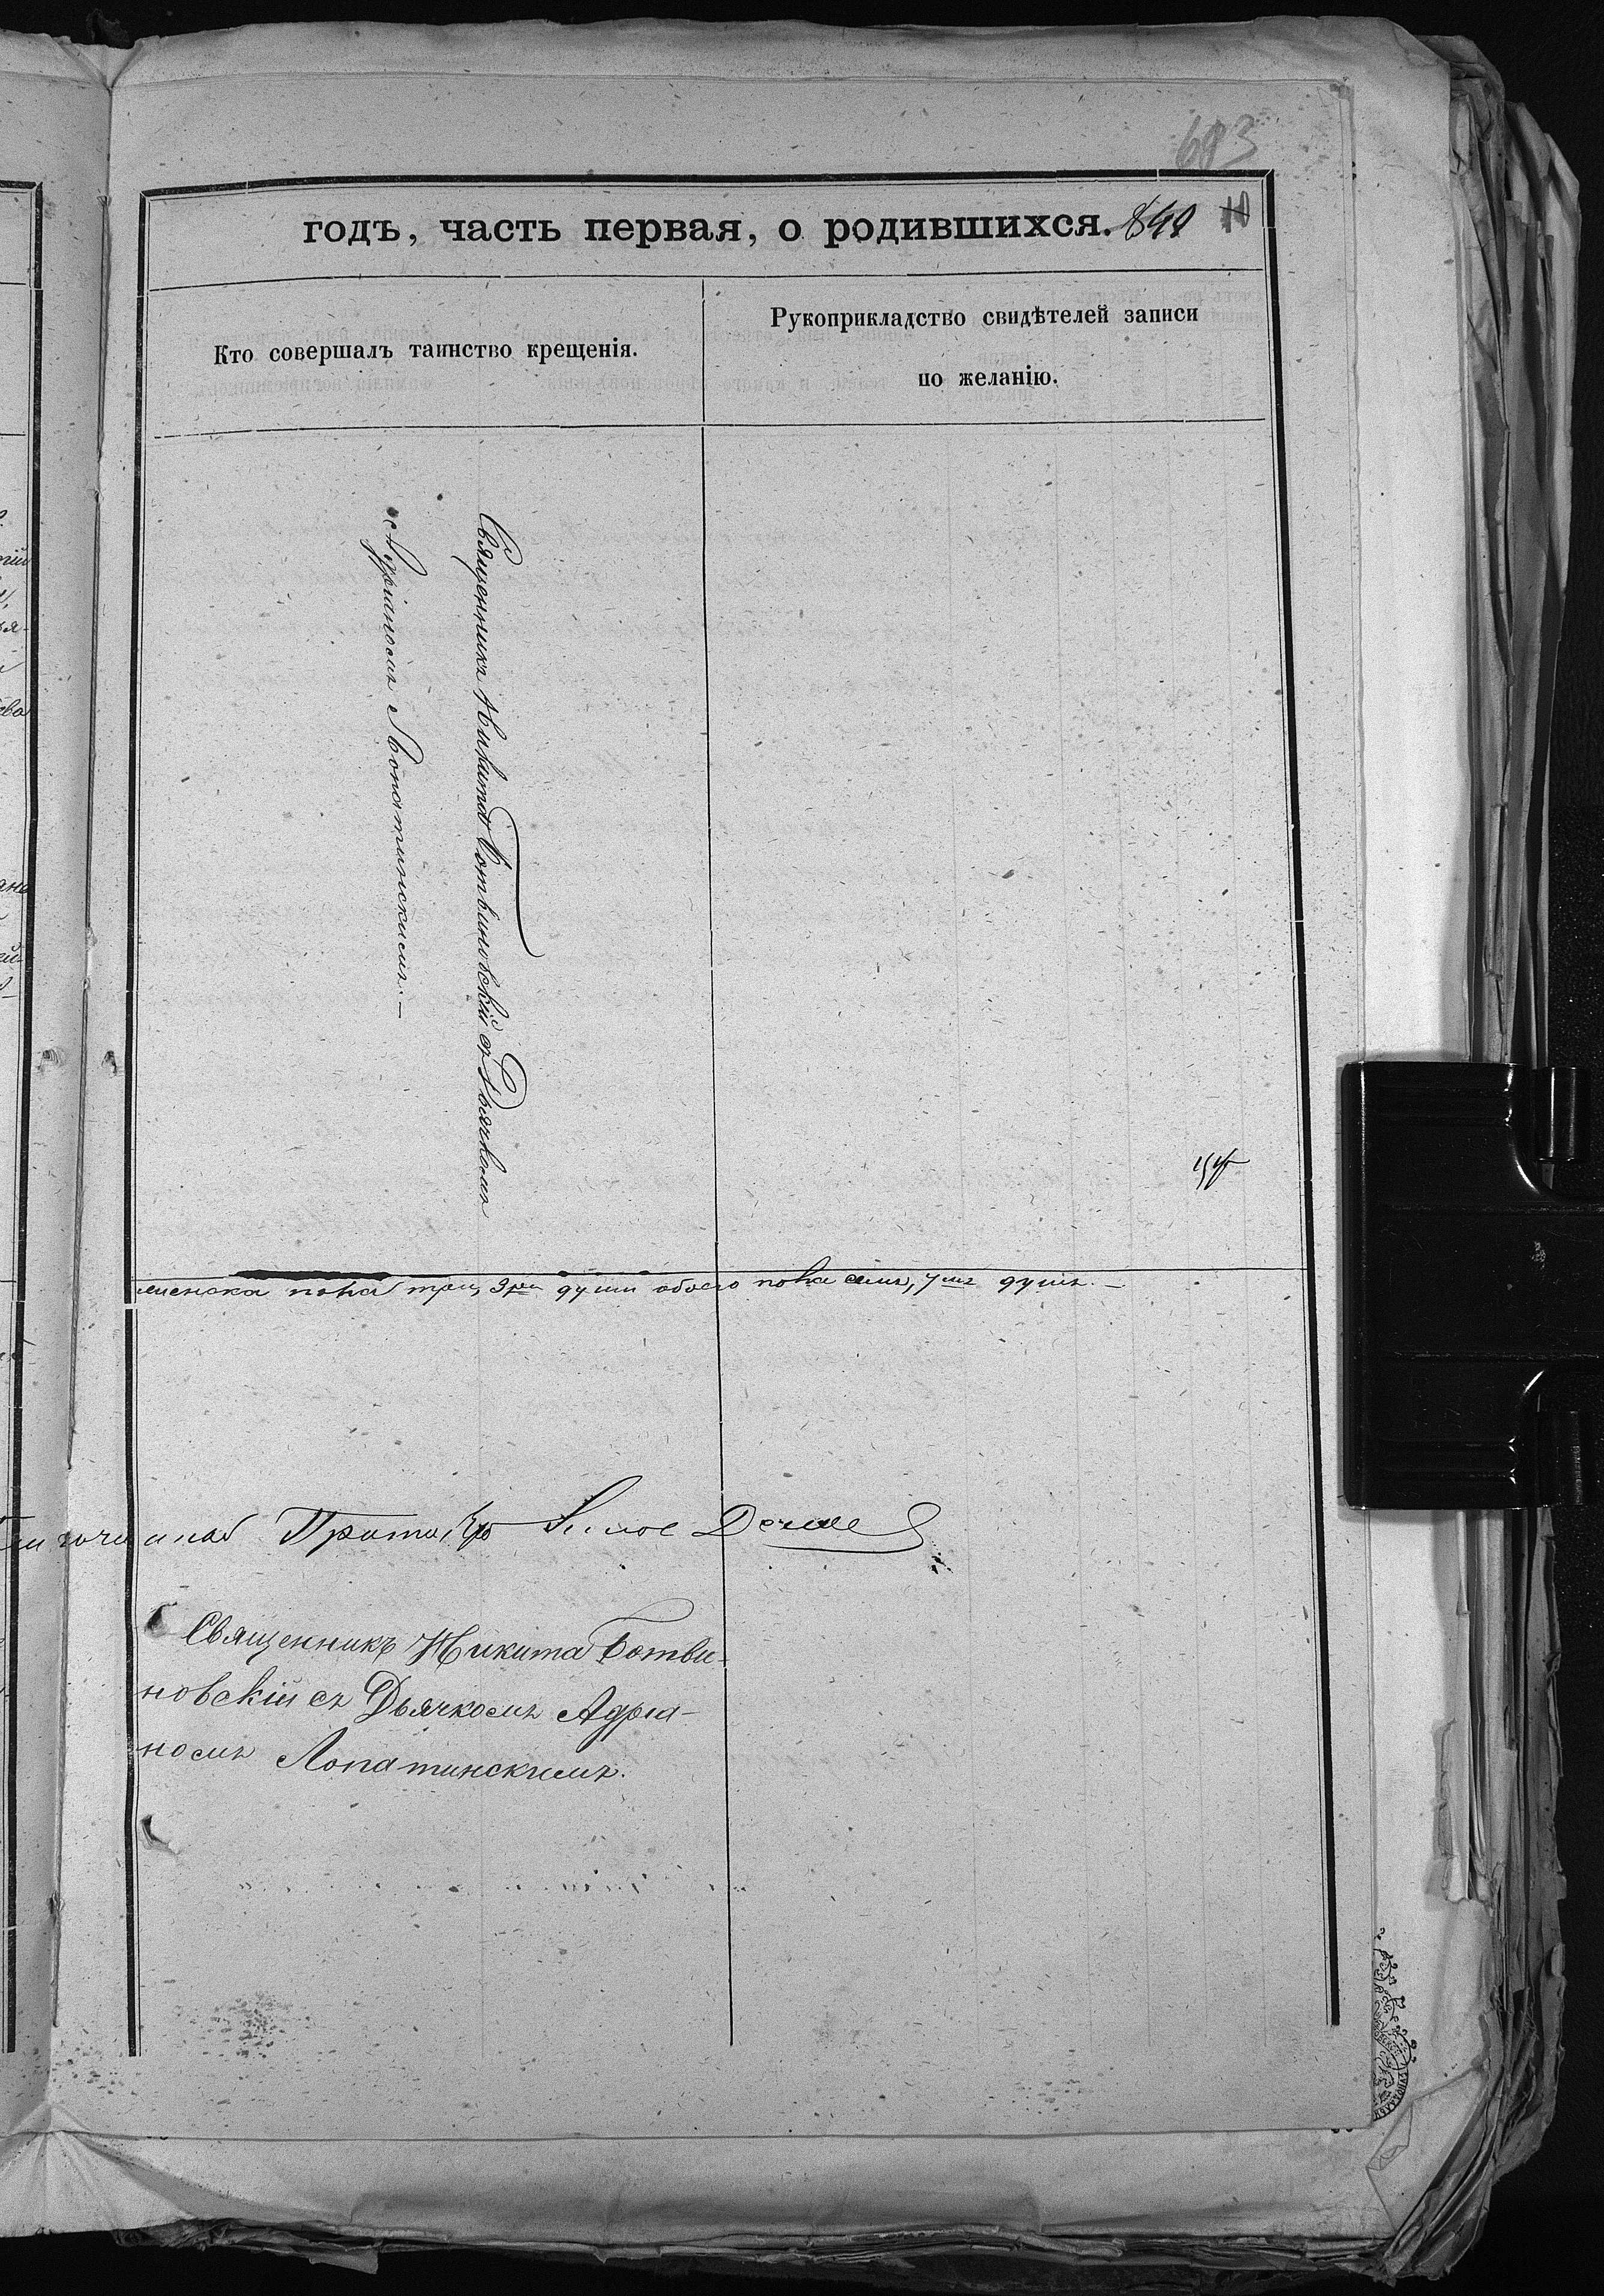 603
годъ, часть первая, о родившихся. 849
Кто совершалъ таинство крещенія.
Рукоприкладство свидѣтелей записи
по желанію.
Священникъ Никита Ботвиновскій съ Дьячкомъ
Адріаномъ Лопатинскимъ. —
женска пола три, 3ри души обоего пола семь, 7мь душъ. —
Священникъ Никита Ботви-
новскій съ Дьячкомъ Адріа-
номъ Лопатинскимъ.